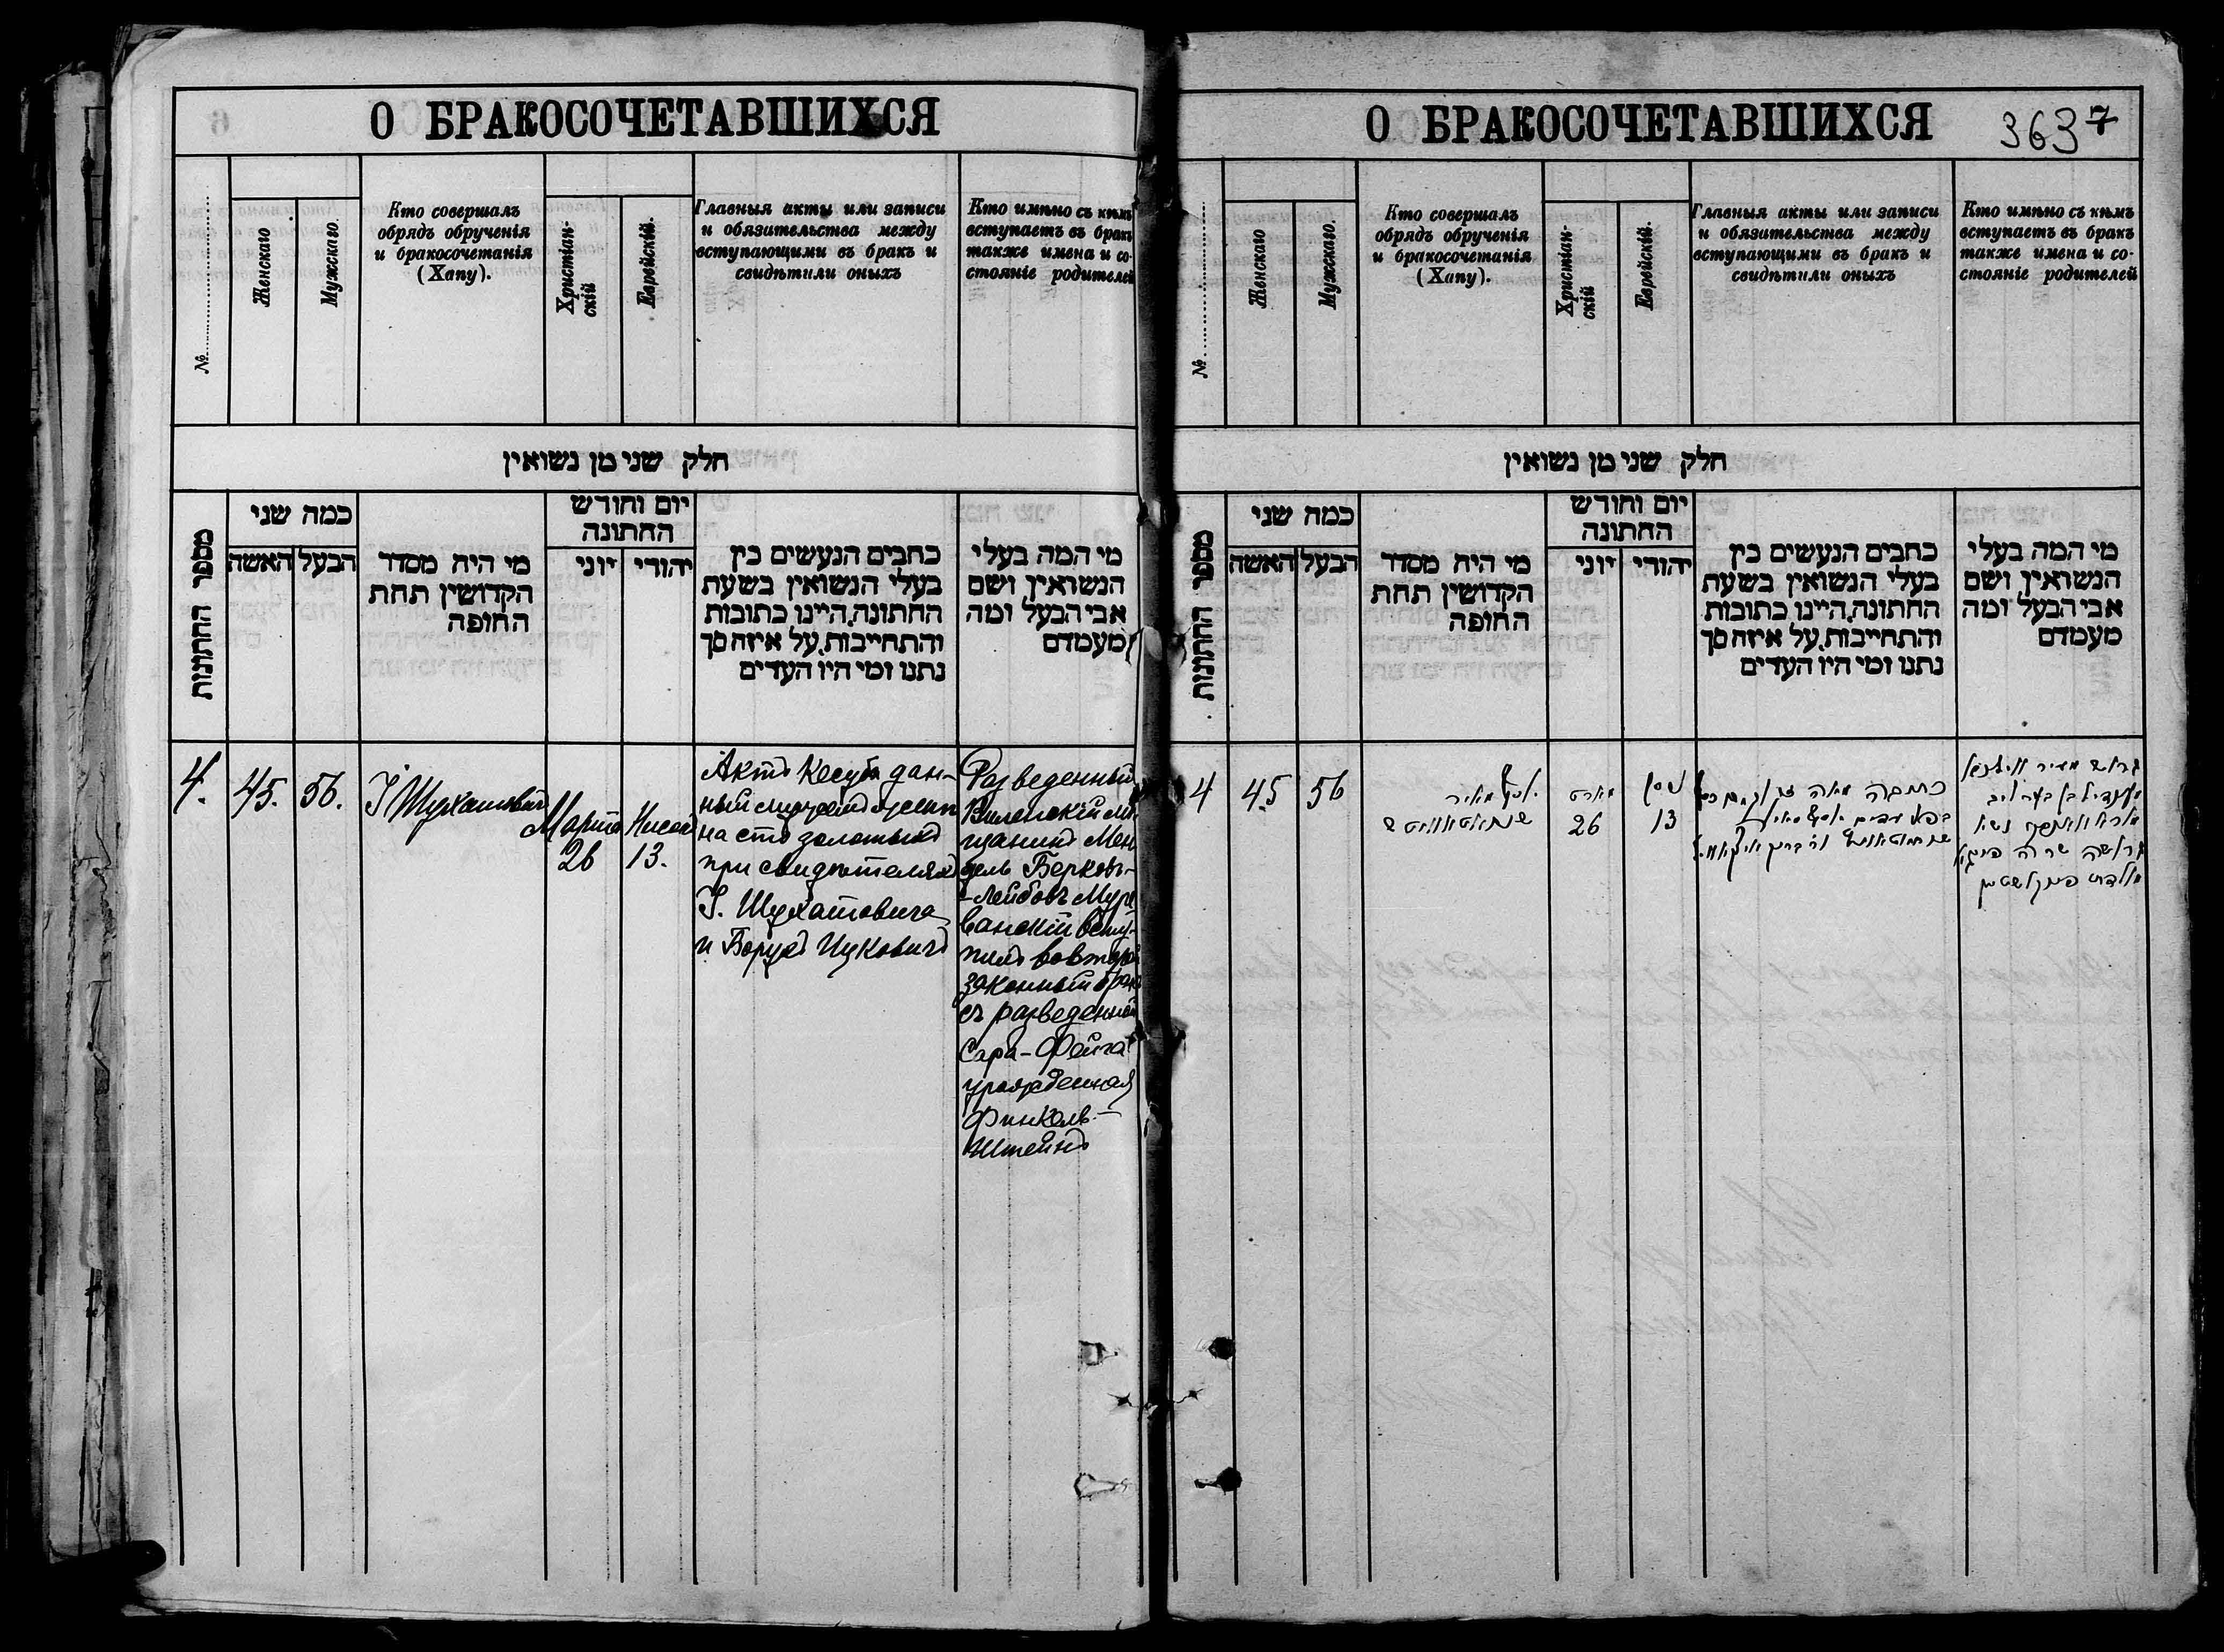 О БРАКОСОЧЕТАВШИХСЯ
№
Женскаго
Мужскаго
Кто совершалъ
обрядъ обрученія
и бракосочетанія
(Хапу).
Христіан-
скій
Еврейскій.
Главныя акты или записи
и обязательства между
вступающими въ бракъ и
свидѣтили оныхъ
Кто имѣно съ кѣмъ
вступаетъ въ бракъ
также имена и со-
стояніе родителей
חלק שני מן נשואין
מספר החתונות
כמה שני
האשה
הבעל
מי היה מסדר
הקדושין תחת
החופה
יום וחודש
החתונה
יוני
יהודי
כתבים הנעשים בין
בעלי הנשואין בשעת
החתונה, היינו כתובות
והתחייבות, על איזה סך
נתנו ומי היו העדים
מי המה בעלי
הנשואין, ושם
אבי הבעל ומה
מעמדם
4.
45.
56.
І Шухатовичъ
Марта
26
Нисан
13.
Актъ Кесуба дан-
ный
на сто золотыхъ
при свидѣтеляхъ
І. Шухатовича
и Борухъ Ицковичъ
Разведенный
Виленскій Мѣ-
щанинъ Мен
дель Берковъ-
-Лейбовъ Муре
ванскій всту-
пилъ вовторой
законный бракъ
съ разведенной
Сара-Фейга
урожденная
Финкель-
Штейнъ
О БРАКОСОЧЕТАВШИХСЯ
363 7
№
Женскаго
Мужскаго.
Кто совершалъ
обрядъ обрученія
и бракосочетанія
(Хапу).
Христіан-
скій
Еврейскій.
Главныя акты или записи
и обязательства между
вступающими въ бракъ и
свидѣтили оныхъ
Кто имѣно съ кѣмъ
вступаетъ въ бракъ
также имена и со-
стояніе родителей
חלק שני מן נשואין
מספר החתונות
כמה שני
האשה
הבעל
מי היה מסדר
הקדושין תחת
החופה
יום וחודש
החתונה
יוני
יהודי
כתבים הנעשים בין
בעלי הנשואין בשעת
החתונה, היינו כתובות
והתחייבות, על איזה סך
נתנו ומי היו העדים
מי המה בעלי
הנשואין, ושם
אבי הבעל ומה
מעמדם
4
45
56
יוסף מאיר
מארט
26
ניסן
13
כתובה מאה
גרוש מעיר ווילנא
מענדיל בן בער ליב
נשא
גרושה שרה פייגא
פינקלשטיין